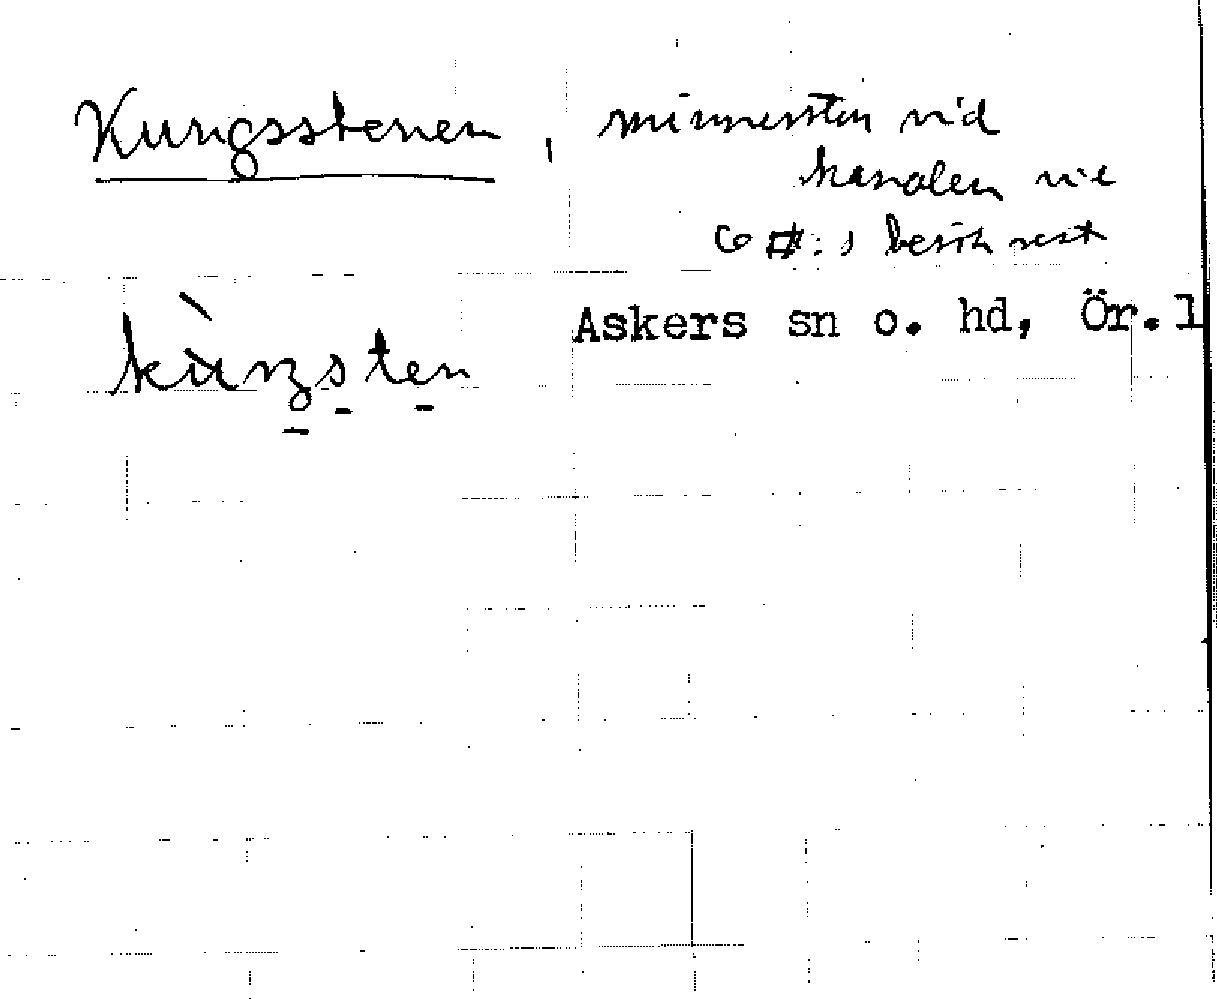 Kungsstenen, minnessten vid
kanalen vid
G :s besök
Askers sn o. hd, Ör.l
kùngsten